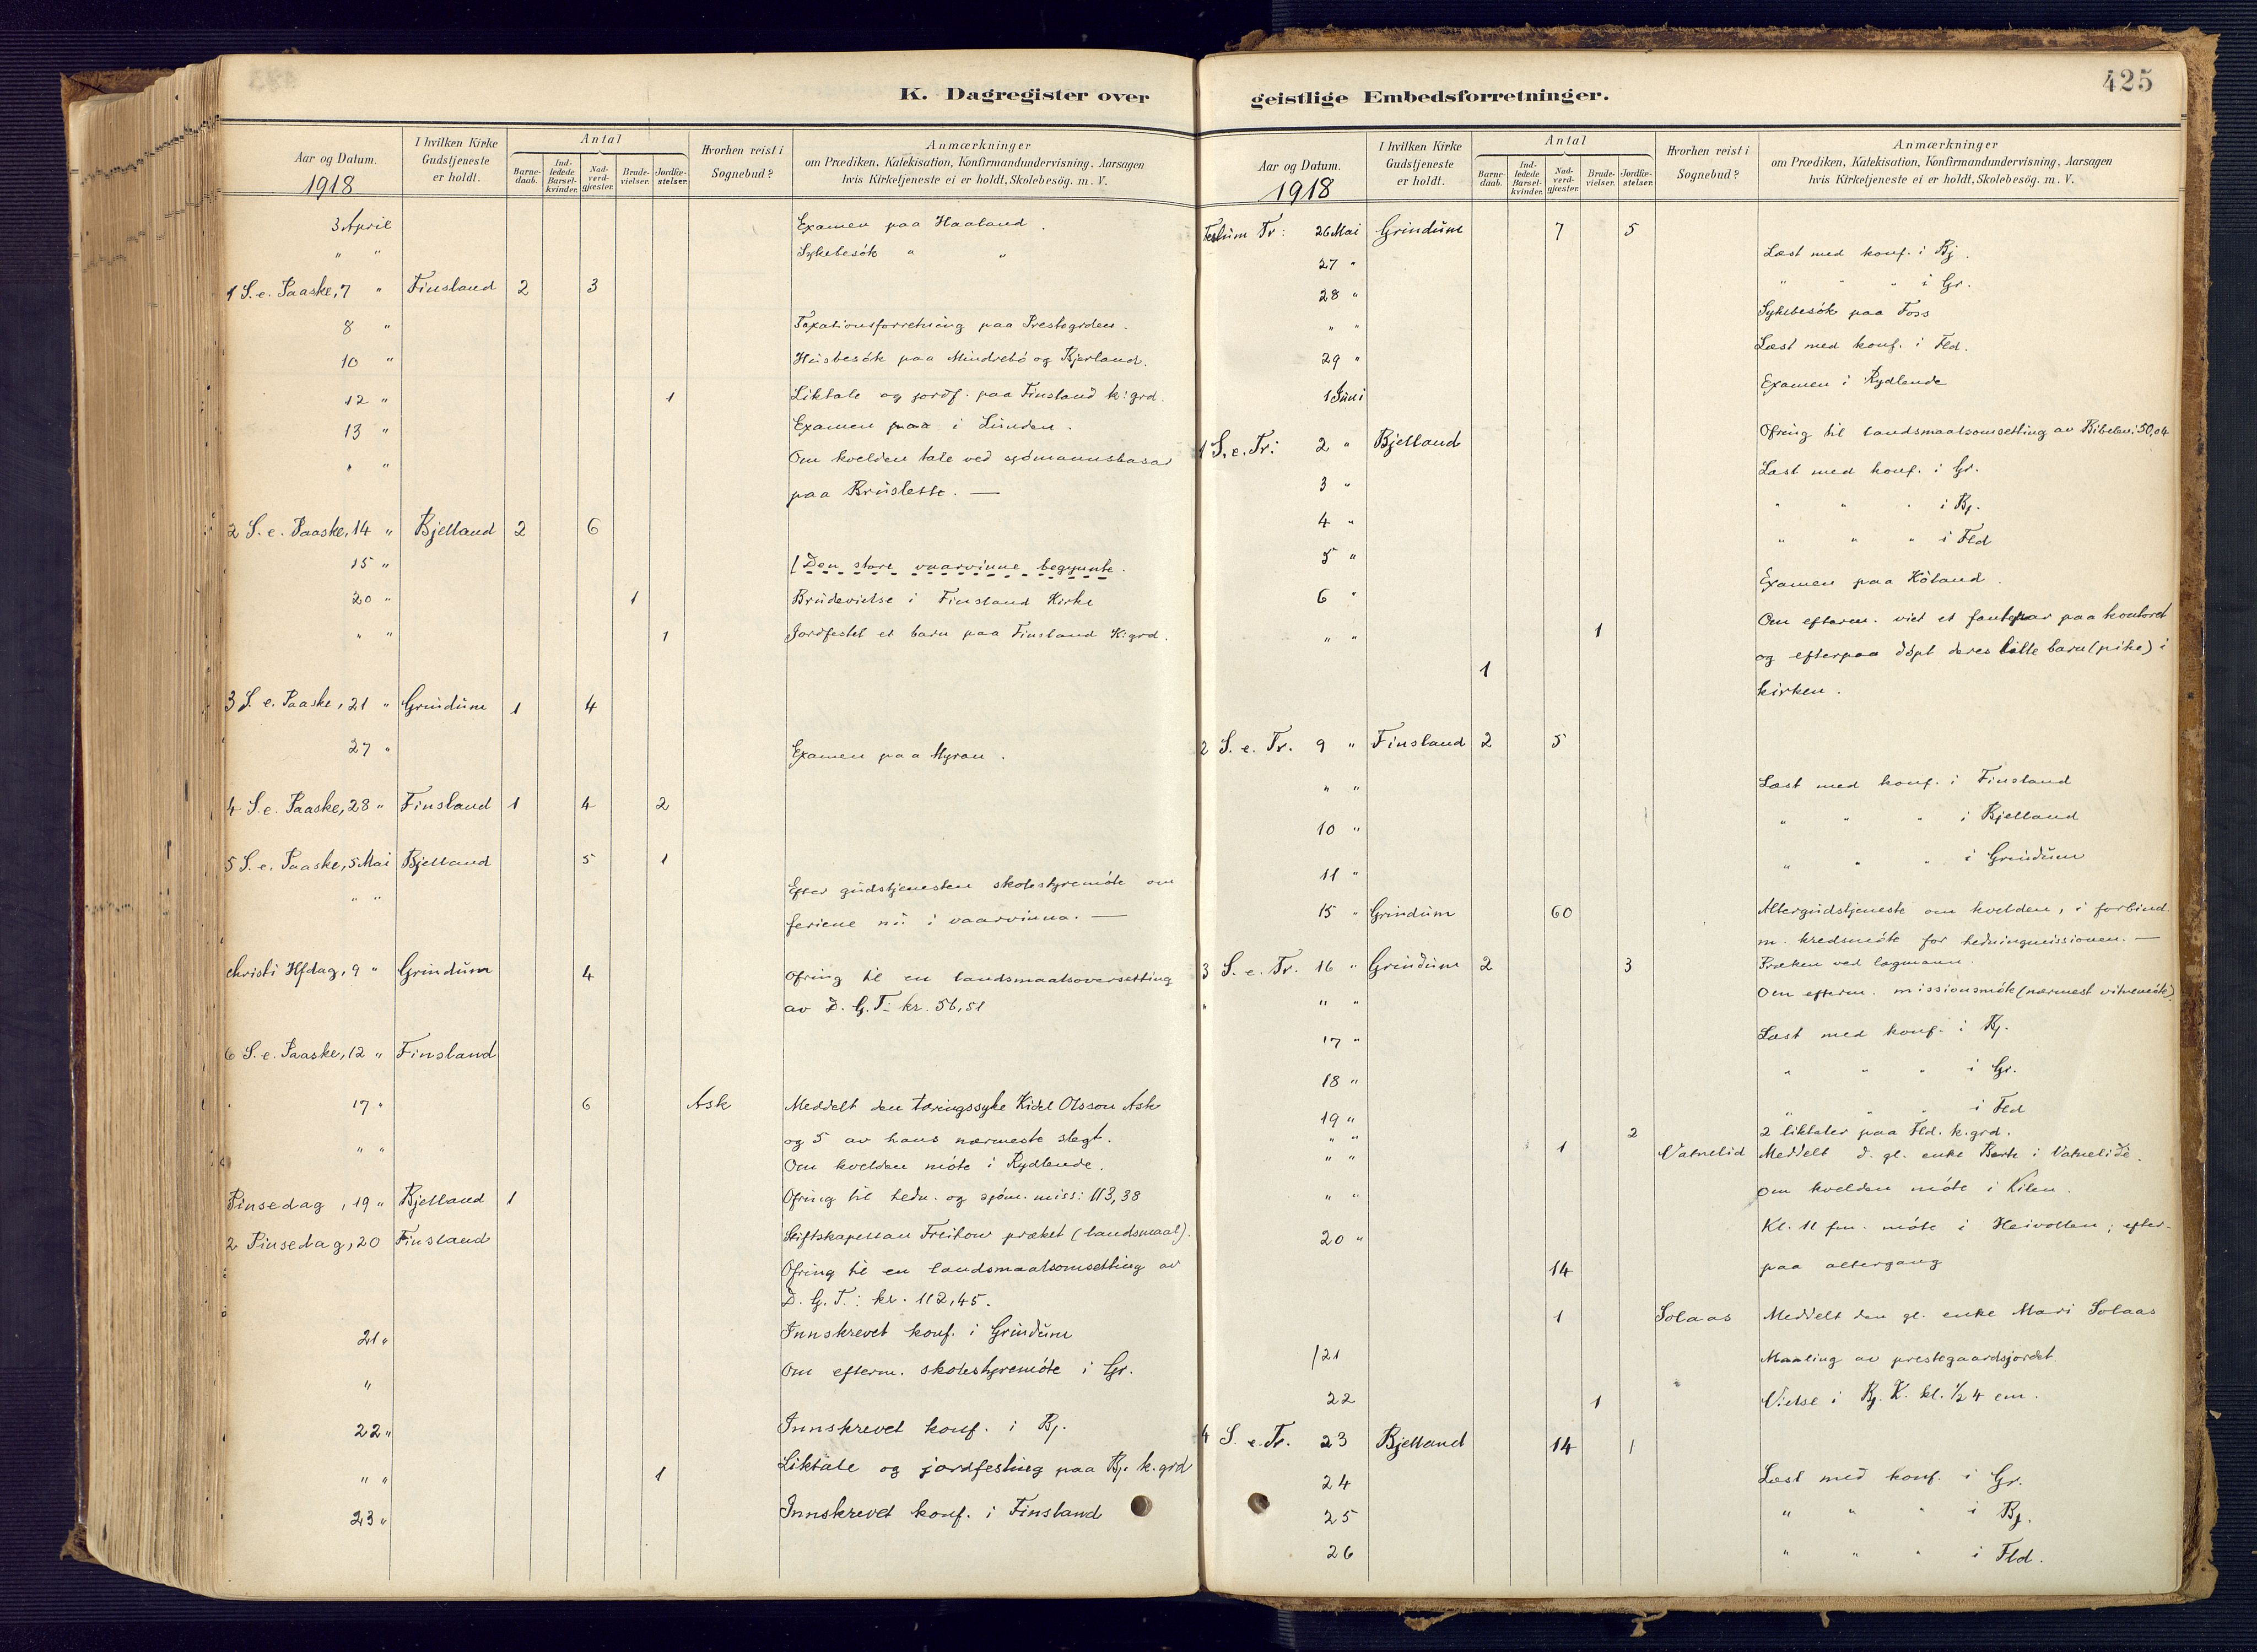 425
K. Dagregister over
Aar og Datum.
1918
I hvilken Kirke Gudstjeneste er holdt.
Antal
Barnedaab.
Indledede Barselkvinder.
Nadverdgjester.
Brudevielser.
Jordfæstelser.
Hvorhen reist i Sognebud?
Anmærkninger
om Prædiken, Katekisation, Konfirmandundervisning, Aarsagen
hvis Kirketjeneste ei er holdt, Skolebesög. m. V.
3 April Examen paa Haaland.
" " Sykebesök " "
1 S. e. Paaske, 7 " Finsland 2 3
8 " Taxationsforretning paa Prestegrden.
10 " Husbesök paa Mindrebö og Bjerland.
12 " 1 Liktale og jordf. paa Finsland k:grd.
13 " Examen paa i Lunden.
" " Om kvelden tale ved sjømannsbasar
paa Bruslette. —
2 S. e. Paaske, 14 " Bjelland 2 6
15 " (Den store vaarvinne begynnte.
20 " 1 Brudevielse i Finsland Kirke
" " 1 Jordfestet et barn paa Finsland K:grd.
3 S. e. Paaske, 21 " Grindum 1 4
27 " Examen paa Myran.
4 S. e. Paaske, 28 " Finsland 1 4 2
5 S. e. Paaske, 5 Mai Bjelland 5 1
" " Efter gudstjenesten skolestyremöte om
feriene nu i vaarvinna. —
Christi Hfdag, 9 " Grindum 4 Ofring til en landsmaalsoversetting
av D. G. T: kr. 56,51
6 S. e. Paaske, 12 " Finsland
17 " 6 Ask Meddelt den tæringssyke Kidel Olsson Ask
og 5 av hans nærmeste slegt.
" " Om kvelden möte i Rydlende.
Pinsedag, 19 " Bjelland 1 Ofring til hedn. og sjöm. miss: 113,38
2 Pinsedag, 20 Finsland Stiftskapellan Freihow præket (landsmaal).
Ofring til en landsmaalsomsetting av
D. G. T.: kr. 112,45.
21 " Innskrevet konf. i Grindum
" Om efterm. skolestyremöte i Gr.
22 " Innskrevet konf. i Bj.
" " 1 Liktale og jordfesting paa Bj. k.grd
23 " Innskrevet konf. i Finsland
geistlige Embedsforretninger.
Aar og Datum.
1918
I hvilken Kirke Gudstjeneste er holdt.
Antal
Barnedaab.
Indledede Barselkvinder.
Nadverdgjester.
Brudevielser.
Jordfæstelser.
Hvorhen reist i Sognebud?
Anmærkninger
om Prædiken, Katekisation, Konfirmandundervisning, Aarsagen
hvis Kirketjeneste ei er holdt, Skolebesög. m. V.
Festum Tr: 26 Mai Grindum 7 5
27 " Læst med konf. i Bj.
28 " " " " i Gr.
" " Sykebesök paa Foss
29 " Læst med konf. i Fld.
1 Juni Examen i Rydlende
1 S. e. Tr: 2 " Bjelland Ofring til landsmaalsomsetting av Bibelen: 50,04
3 " Læst med konf. i Gr.
4 " " " " i Bj.
5 " " " " i Fld
6 " Examen paa Höland.
" " 1 Om efterm. viet et fantepar paa kontoret
1 og efterpaa döpt deres lille barn (pike) i
kirken.
2 S. e. Tr. 9 " Finsland 2 5
" " Læst med konf. i Finsland
10 " " " " i Bjelland
11 " " " " i Grindum
15 " Grindum 60 Altergudstjeneste om kvelden, i forbind.
m. kredsmöte for hedningmissionen. —
3 S. e. Tr. 16 " Grindum 2 3 Præken ved lagmann.
" " " Om efterm. missionsmöte (nærmest vitnemöte)
17 " Læst med konf. i Bj.
18 " " " " i Gr.
19 " " " " i Fld
" " 2 2 liktaler paa Fld. k.grd.
" " 1 Vatnelid Meddelt d. gl. enke Berte i Vatnelide.
" " Om kvelden möte i Kilen.
20 " Kl. 11 fm. möte i Heivollen; efter-
14 paa altergang
1 Solaas Meddelt den gl. enke Mari Solaas
/21 Maaling av prestegaardsjordet.
22 1 Vielse i Bj. K. kl. 1/2 4 em.
4 S. e. Tr. 23 Bjelland 14 1
24 Læst med konf. i Gr.
25 " " " i Bj.
26 " " " i Fld.